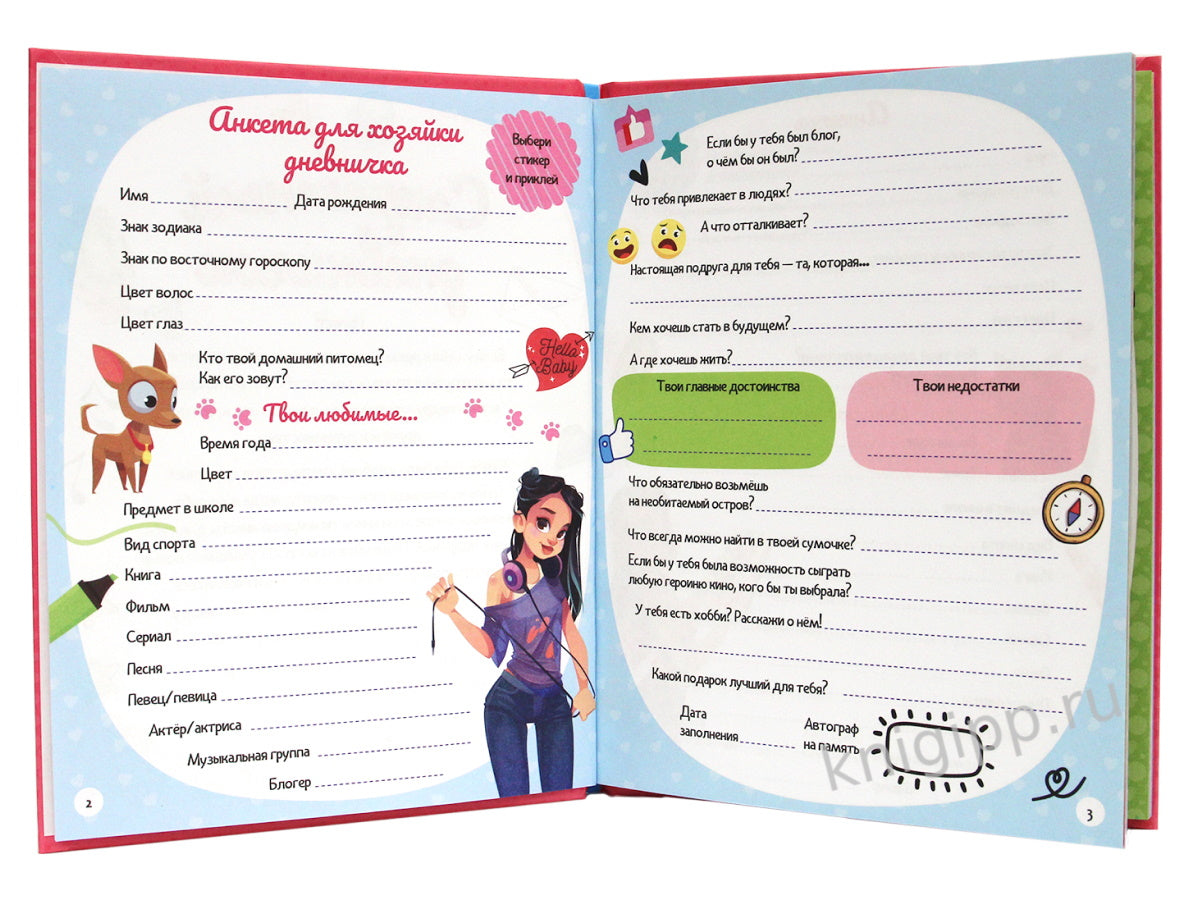 Анкета для хозяйки
дневничка
Выбери
стикер
и приклей
Имя Дата рождения
Знак зодиака
Знак по восточному гороскопу
Цвет волос
Цвет глаз
Кто твой домашний питомец?
Как его зовут?
Hello
Baby
Твои любимые...
Время года
Цвет
Предмет в школе
Вид спорта
Книга
Фильм
Сериал
Песня
Певец/певица
Актёр/актриса
Музыкальная группа
Блогер
2
Если бы у тебя был блог,
о чём бы он был?
Что тебя привлекает в людях?
А что отталкивает?
Настоящая подруга для тебя — та, которая...
Кем хочешь стать в будущем?
А где хочешь жить?
Твои главные достоинства
Твои недостатки
Что обязательно возьмёшь
на необитаемый остров?
Что всегда можно найти в твоей сумочке?
Если бы у тебя была возможность сыграть
любую героиню кино, кого бы ты выбрала?
У тебя есть хобби? Расскажи о нём!
Какой подарок лучший для тебя?
Дата
заполнения
Автограф
на память
knigipp.ru
3